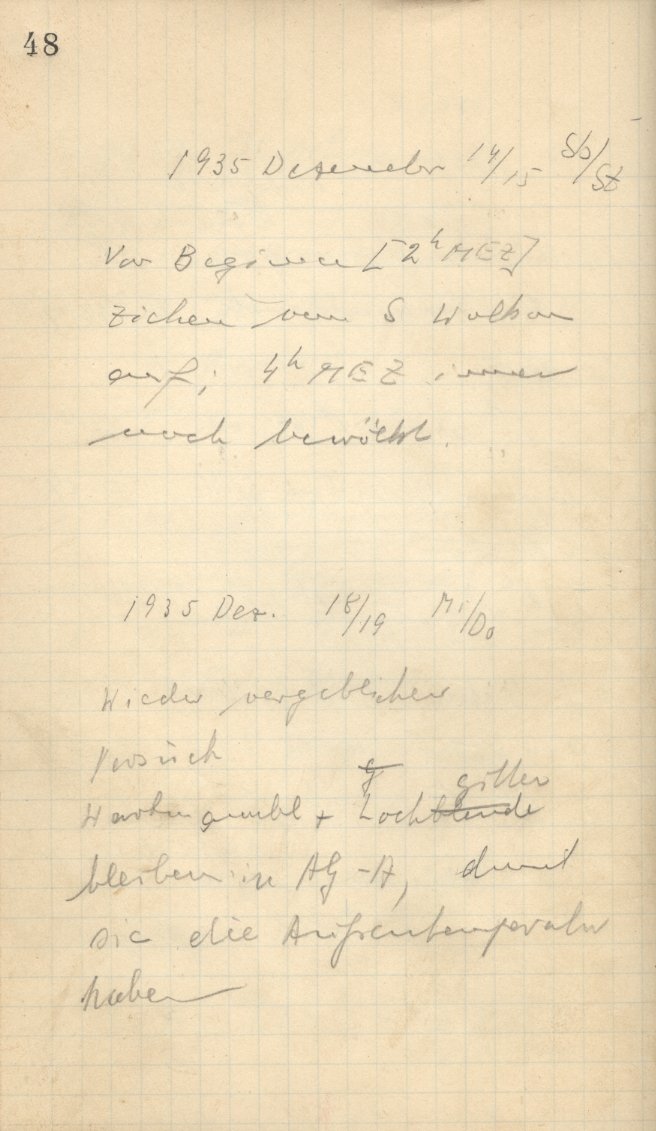 48
1935 Dezember 14/15 Sb/St
Vor Beginn [2h MEZ]
ziehen von S Wolken
auf; 4h MEZ immer
noch bewölkt.
1935 Dez. 18/19 Mi/Do
Wieder vergeblicher
Versuch
gitter
+ Lochblende
bleiben in AG-A, damit
sie die Außentemperatur
haben